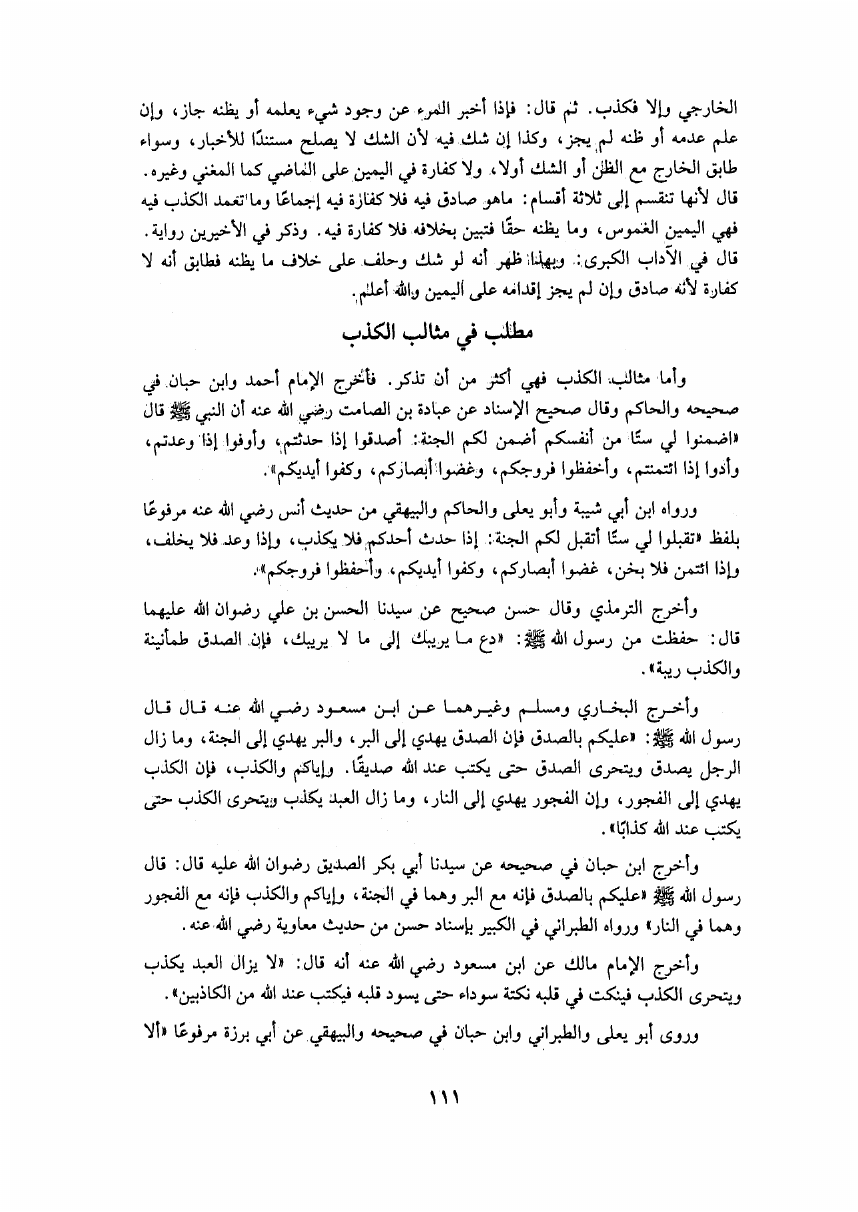 الخارجي وإلا فكذب. ثم قال: فإذا أخبر المرء عن وجود شيء يعلمه أو يظنه جاز، وإن
علم عدمه أو ظنه لم يجز، وكذا إن شك فيه لأن الشك لا يصلح مستندًا للأخبار، وسواء
طابق الخارج مع الظن أو الشك أولا، ولا كفارة في اليمين على الماضي كما المغني وغيره.
قال لأنها تنقسم إلى ثلاثة أقسام: ماهو صادق فيه فلا كفارة فيه إجماعًا وما تعمد الكذب فيه
فهي اليمين الغموس، وما يظنه حقًا فتبين بخلافه فلا كفارة فيه. وذكر في الأخيرين رواية.
قال في الآداب الكبرى: وبهذا ظهر أنه لو شك وحلف على خلاف ما يظنه فطابق أنه لا
كفارة لأنه صادق وإن لم يجز إقدامه على اليمين والله أعلم.
مطلب في مثالب الكذب
وأما مثالب الكذب فهي أكثر من أن تذكر. فأخرج الإمام أحمد وابن حبان في
صحيحه والحاكم وقال صحيح الإسناد عن عبادة بن الصامت رضي الله عنه أن النبي ﷺ قال
«اضمنوا لي ستًا من أنفسكم أضمن لكم الجنة: أصدقوا إذا حدثتم، وأوفوا إذا وعدتم،
وأدوا إذا ائتمنتم، وأحفظوا فروجكم، وغضوا أبصاركم، وكفوا أيديكم».
ورواه ابن أبي شيبة وأبو يعلى والحاكم والبيهقي من حديث أنس رضي الله عنه مرفوعًا
بلفظ «تقبلوا لي ستًا أتقبل لكم الجنة: إذا حدث أحدكم فلا يكذب، وإذا وعد فلا يخلف،
وإذا ائتمن فلا يخن، غضوا أبصاركم، وكفوا أيديكم، وأحفظوا فروجكم».
وأخرج الترمذي وقال حسن صحيح عن سيدنا الحسن بن علي رضوان الله عليهما
قال: حفظت من رسول الله ﷺ: «دع ما يريبك إلى ما لا يريبك، فإن الصدق طمأنينة
والكذب ريبة».
وأخرج البخاري ومسلم وغيرهما عن ابن مسعود رضي الله عنه قال قال
رسول الله ﷺ: «عليكم بالصدق فإن الصدق يهدي إلى البر، والبر يهدي إلى الجنة، وما زال
الرجل يصدق ويتحرى الصدق حتى يكتب عند الله صديقًا. وإياكم والكذب، فإن الكذب
يهدي إلى الفجور، وإن الفجور يهدي إلى النار، وما زال العبد يكذب ويتحرى الكذب حتى
يكتب عند الله كذابًا».
وأخرج ابن حبان في صحيحه عن سيدنا أبي بكر الصديق رضوان الله عليه قال: قال
رسول الله ﷺ «عليكم بالصدق فإنه مع البر وهما في الجنة، وإياكم والكذب فإنه مع الفجور
وهما في النار» ورواه الطبراني في الكبير بإسناد حسن من حديث معاوية رضي الله عنه.
وأخرج الإمام مالك عن ابن مسعود رضي الله عنه أنه قال: «لا يزال العبد يكذب
ويتحرى الكذب فينكت في قلبه نكتة سوداء حتى يسود قلبه فيكتب عند الله من الكاذبين».
وروى أبو يعلى والطبراني وابن حبان في صحيحه والبيهقي عن أبي برزة مرفوعًا «ألا
١١١